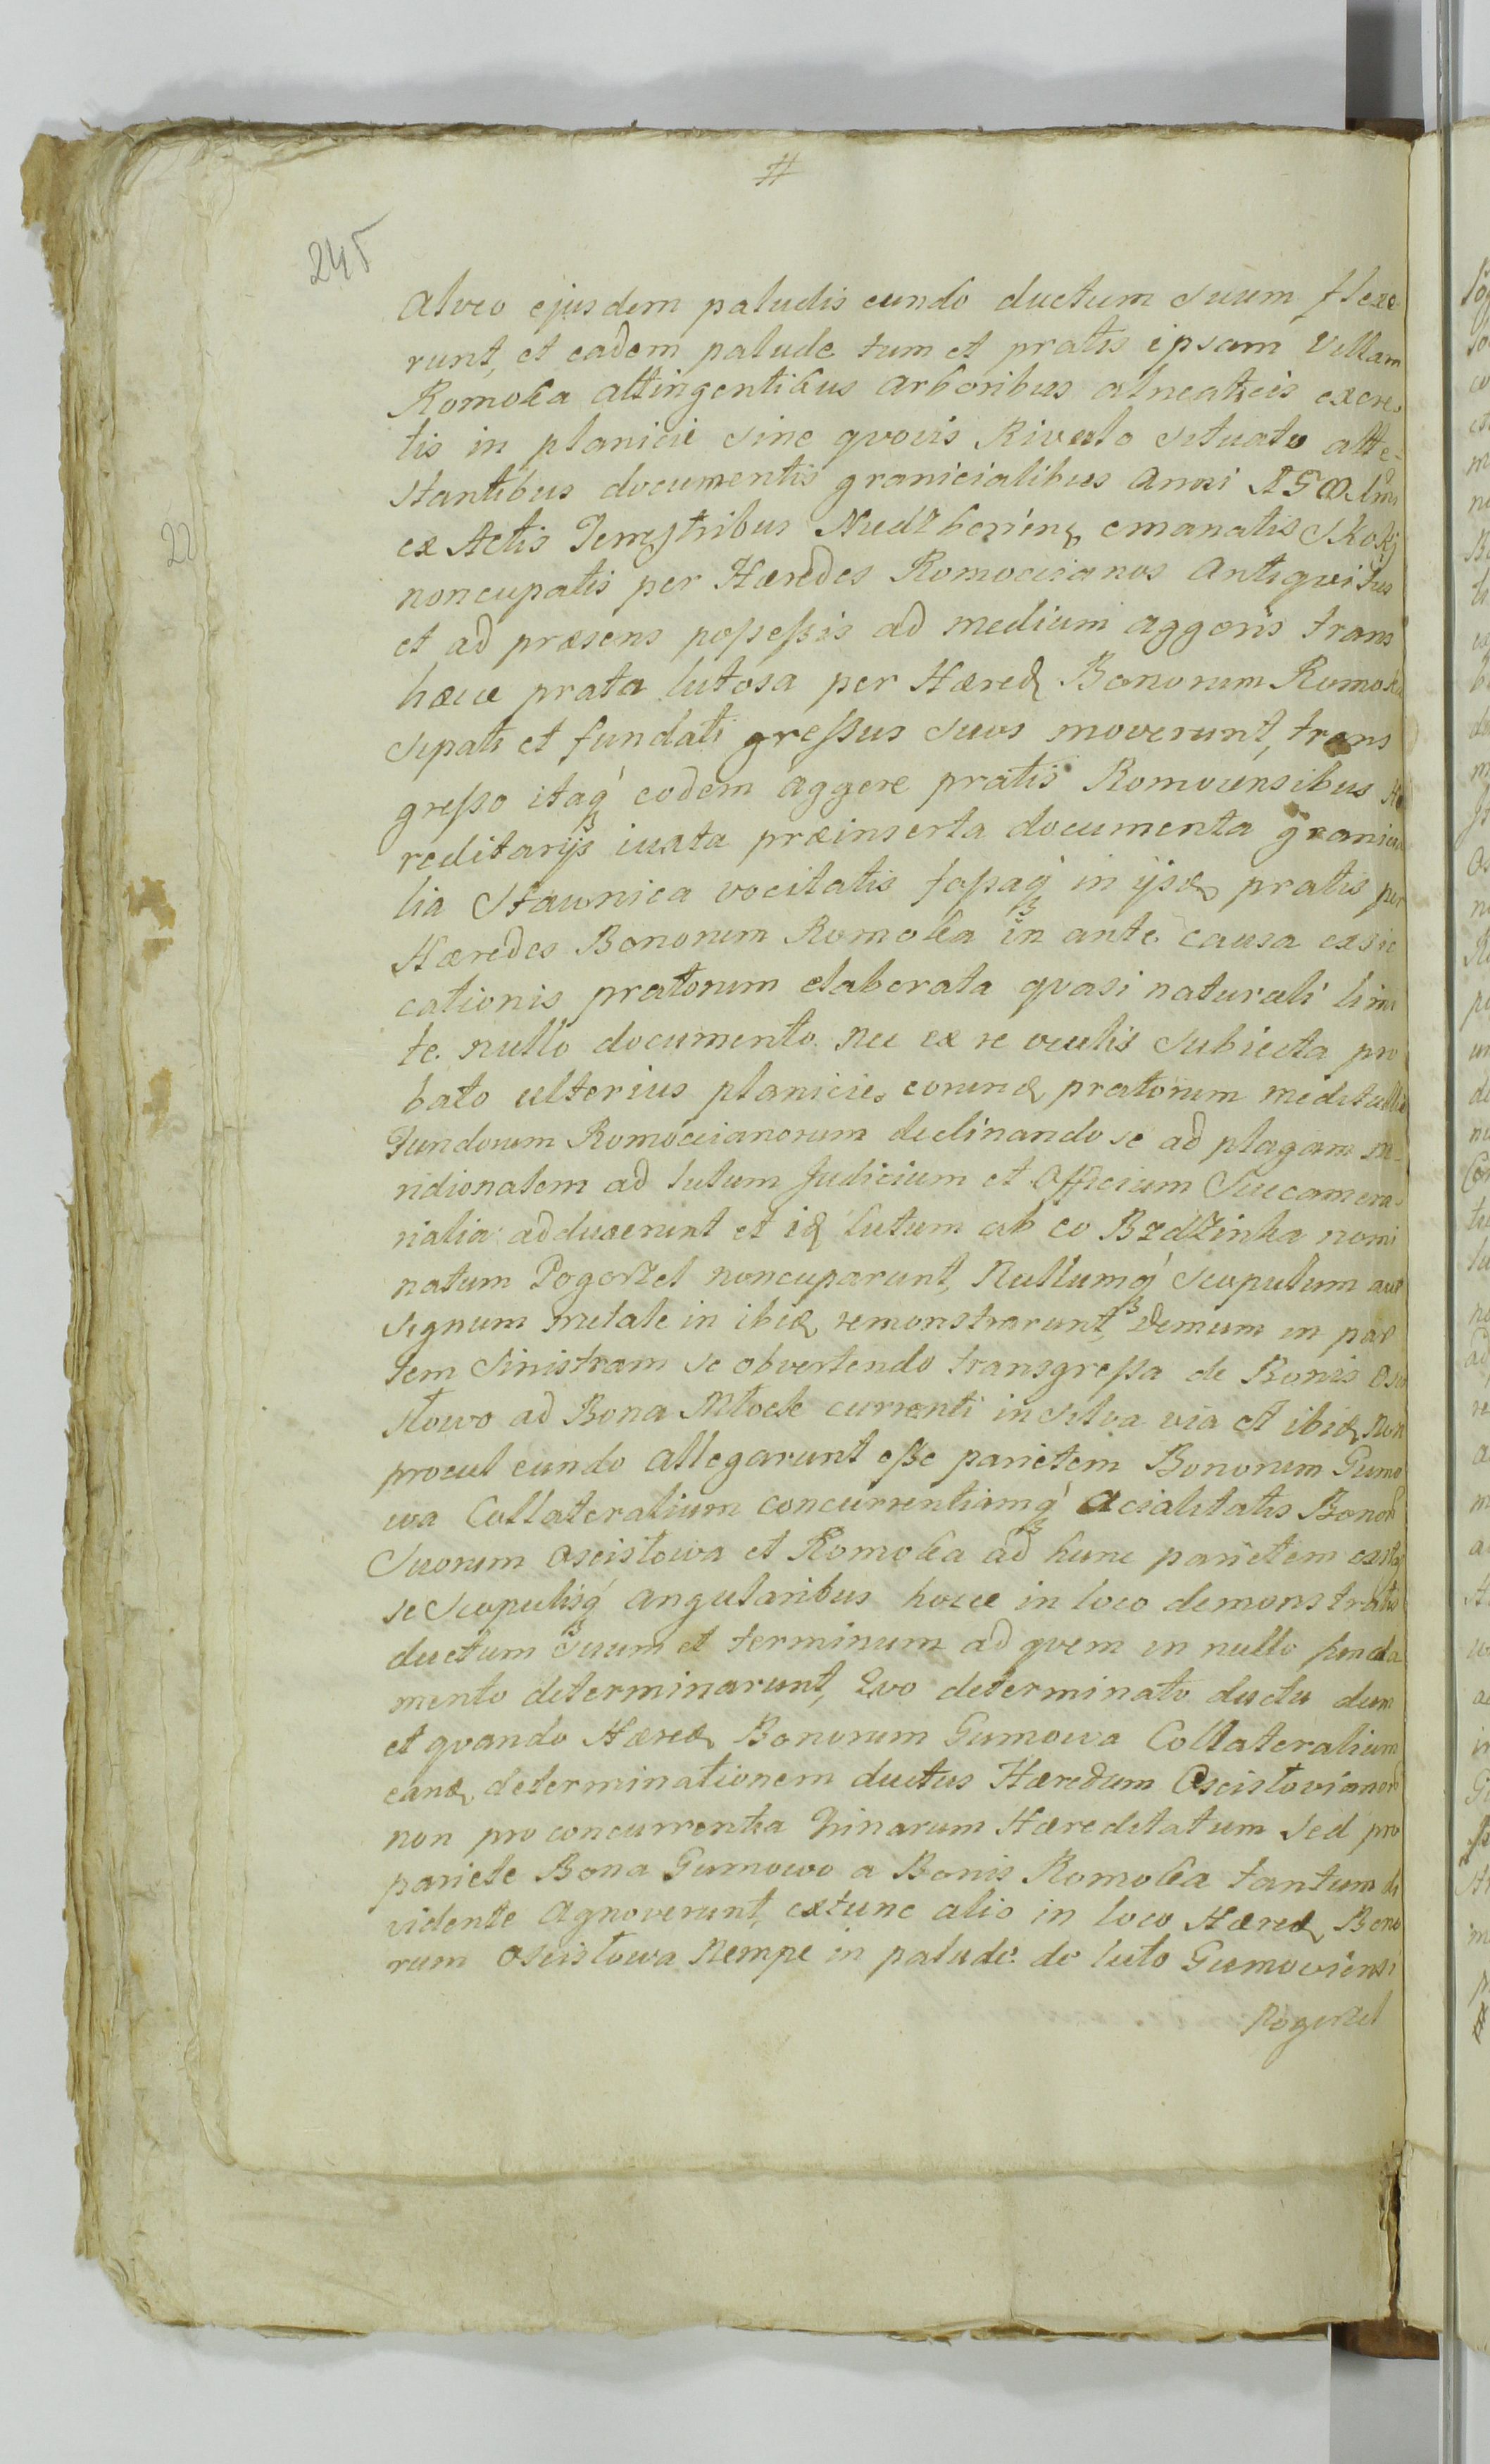 #
245
alveo ejusdem paludis eundo ductum suum flexe-
runt, et eadem palude tum et pratis ipsam Villam
Romoka attingentibus arboribus alneatieis excre-
tis in planicie sine qvovis Rivulo situato atte-
stantibus documentis granicialibus anni
22
ex Actis Terrestribus emanatis Skoky
noncupatis per Hæredes Romocianos Antiqvitus
et ad præsens possessis ad medium aggeris trans
hæce prata lutosa per Hæred Bonorum Romoka
sipati et fundati gressus suos moverunt, trans
gresso itaq eodem aggere pratis Romociensibus Hæ
reditarijs iuxta præinserta documenta granicia
lia Stawnica vocitatis fossaq in ijsd pratis per
Hæredes Bonorum Romoka in ante causa exsic
cationis pratorum elaborata qvasi naturali limi
te nullo documento nec ex re oculis subiecta pro
bato ulterius planicie eorund pratorum meditullio
Fundorum Romocianorum declinando se ad plagam me-
ridionalem ad lutum Judicium et Officium Succamera-
rialia adduxerunt et id lutum ab eo Bzdzinka nomi
natum Pogorzel noncuparunt, Nullumq scopulum aut
signum metale in ibid remonstrarunt, Demum in par
tem sinistram se obvertendo transgressa de Bonis Osci
stowo ad Bona Mlock currenti in silva via et ibid Non
procul eundo allegarunt esse parietem Bonorum Gumo
wa Collateralium concurrentiamq acialitatis Bonor
Suorum Oscistowa et Romoka ad hunc parietem
se scopulisq angularibus hocce in loco demonstratis
ductum suum et terminum ad qvem in nullo funda
mento determinarunt, Qvo determinato ductu dum
et qvando Hæred Bonorum Gumowa Collateralium
eand determinationem ductus Hæredum Oscistovianor
non pro concurrentia Trinarum Hæreditatum sed pro
pariete Bona Gumowo a Bonis Romoka tantum di
vidente agnoverunt, extunc alio in loco Hæred Bono
rum Oscistowa Nempe in palude de luto Gumoviensi
Pogorzel